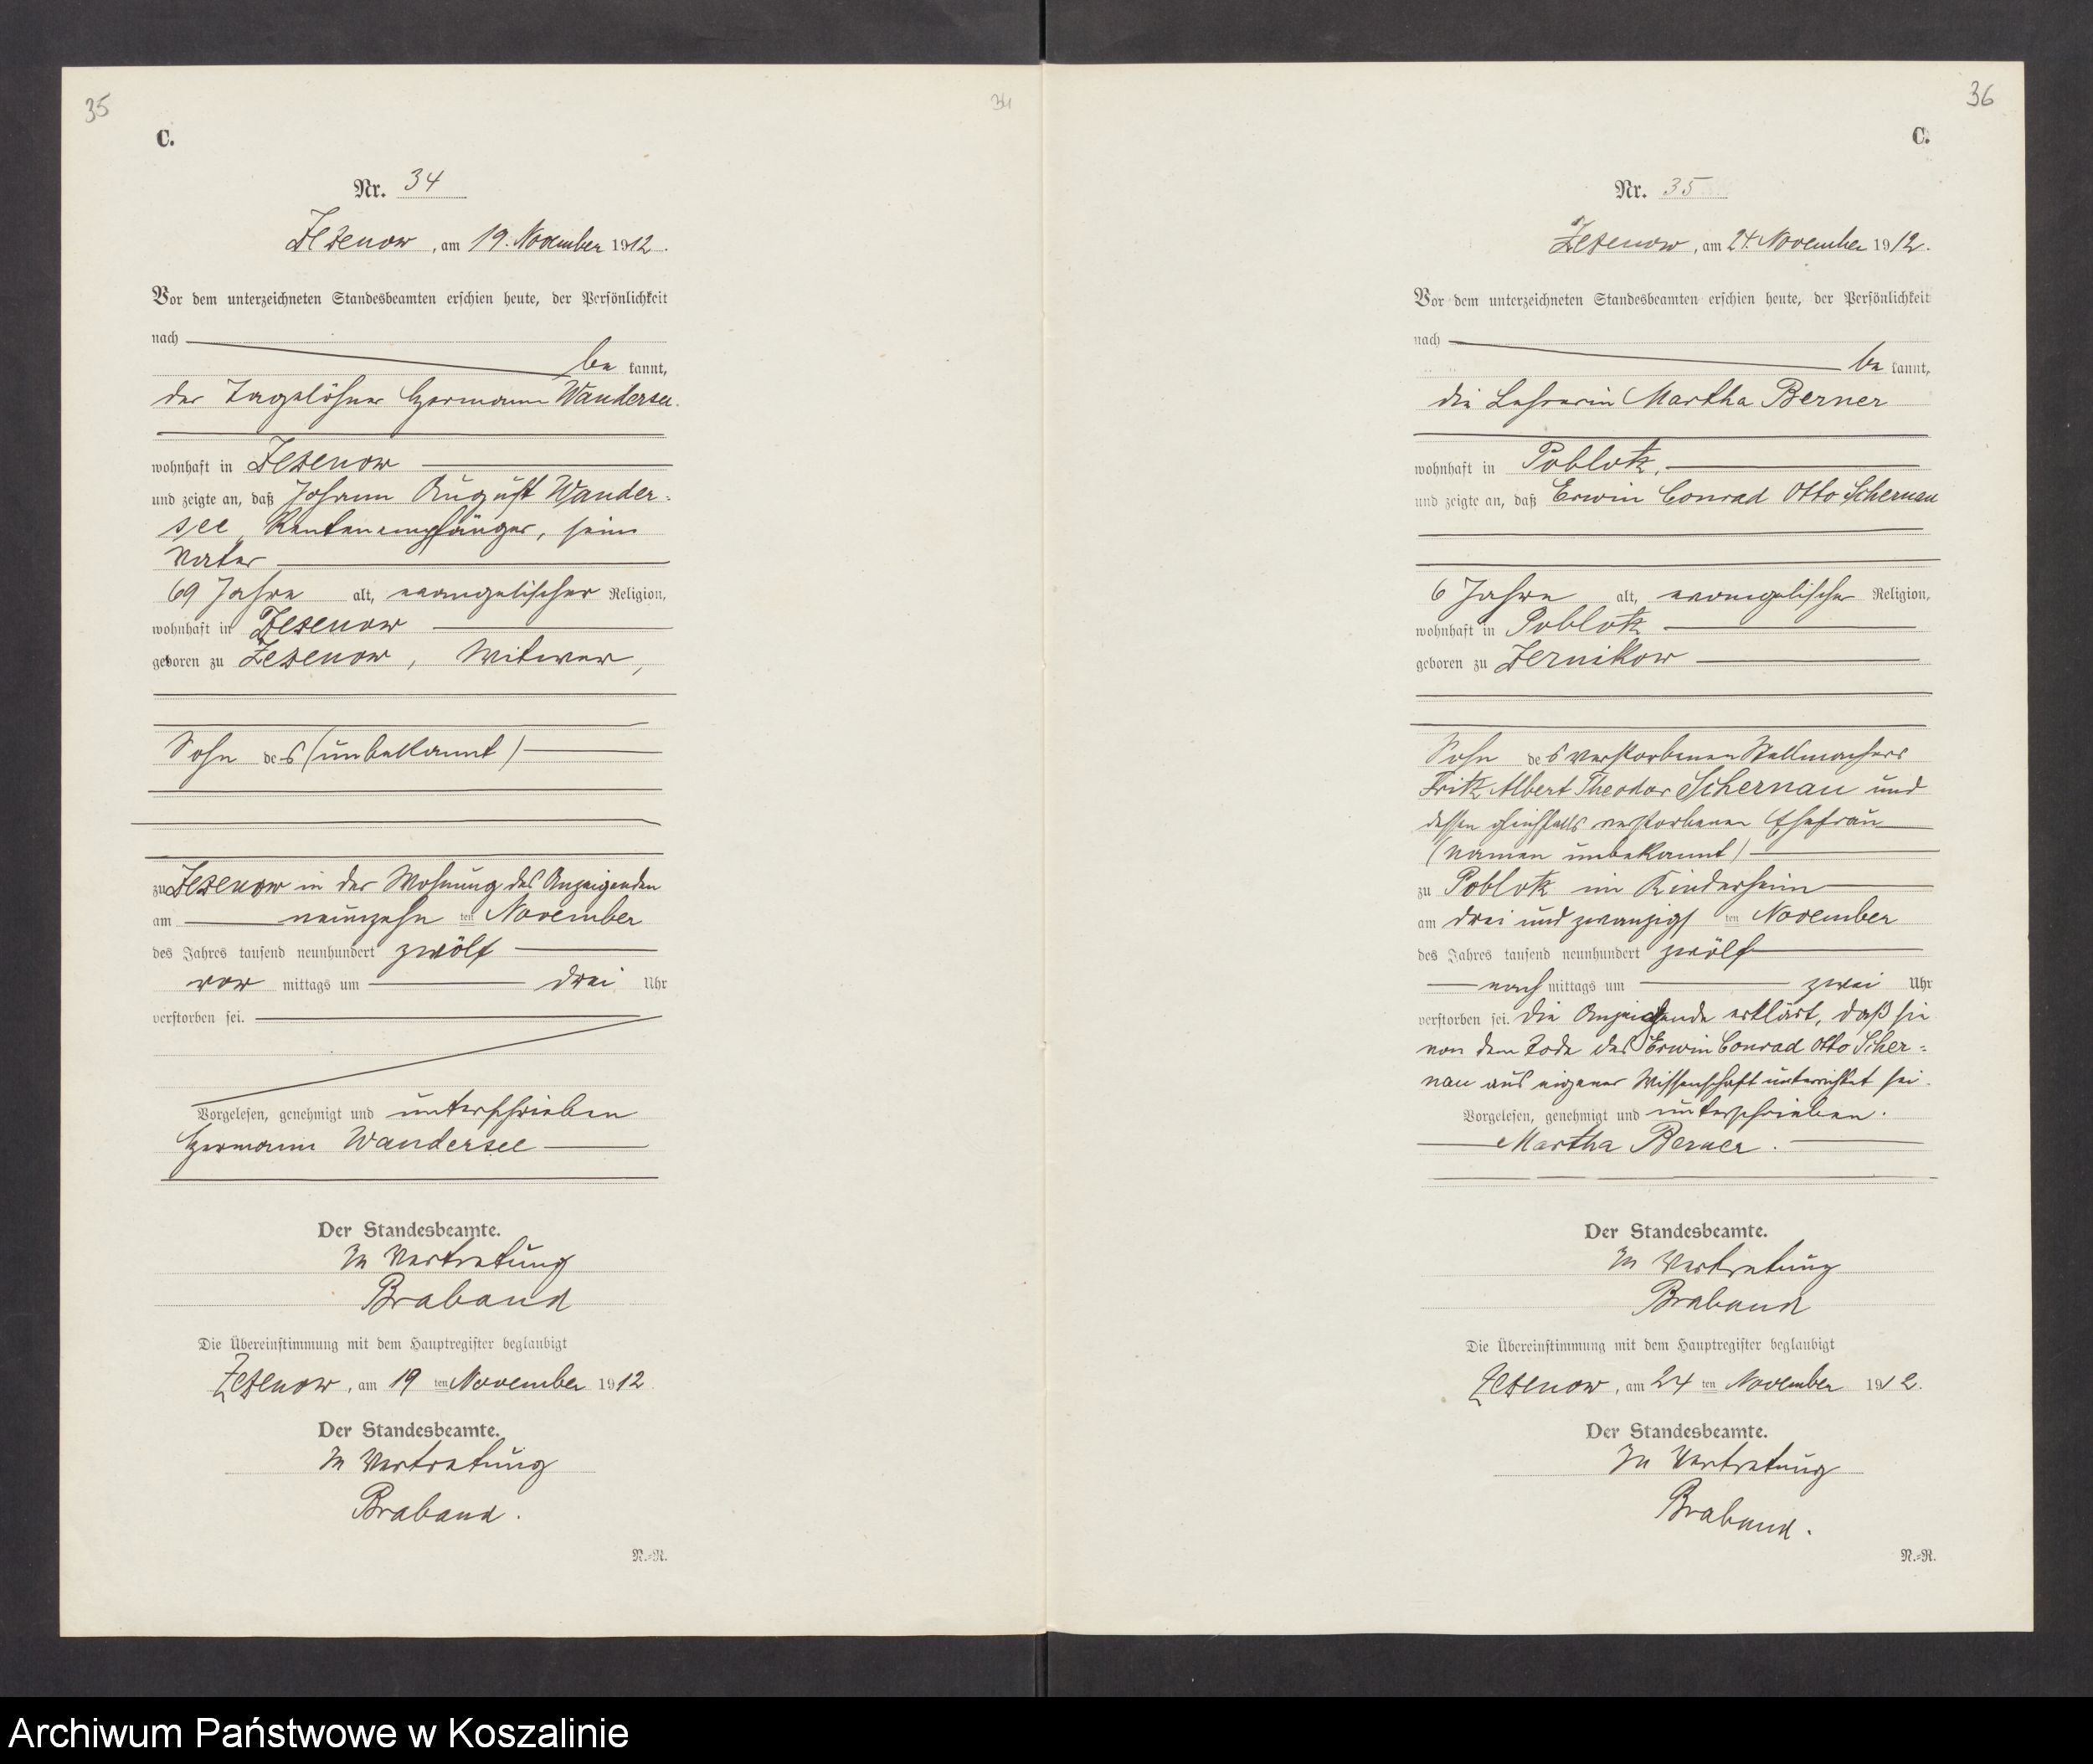 35
34
C.
Nr. 34
Zezenow, am 19. November 1912.
Vor dem unterzeichneten Standesbeamten erschien heute, der Persönlichkeit
nach
be kannt,
der Tagelöhner Hermann Wandersee.
wohnhaft in Zezenow
und zeigte an, daß Johann August Wander-
see, Rentenempfänger, sein
Vater
69 Jahre alt, evangelischer Religion,
wohnhaft in Zezenow
geboren zu Zezenow, Witwer,
Sohn des (unbekannt)
zu Zezenow in der Wohnung des Anzeigenden
am neunzehn ten November
des Jahres tausend neunhundert zwölf
vor mittags um drei Uhr
verstorben sei.
Vorgelesen, genehmigt und unterschrieben
Hermann Wandersee
Der Standesbeamte.
In Vertretung
Braband
Die Übereinstimmung mit dem Hauptregister beglaubigt
Zezenow, am 19 ten November 1912
Der Standesbeamte.
In Vertretung
Braband.
N.-R.
36
C.
Nr. 35
Zezenow, am 24 November 1912.
Vor dem unterzeichneten Standesbeamten erschien heute, der Persönlichkeit
nach
be kannt,
die Lehrerin Martha Berner
wohnhaft in Poblotz.
und zeigte an, daß Erwin Conrad Otto Schernau
6 Jahre alt, evangelischer Religion,
wohnhaft in Poblotz
geboren zu Zernikow
Sohn des verstorbenen Stellmachers
Fritz Albert Theodor Schernau und
dessen gleichfalls verstorbenen Ehefrau
(Namen unbekannt)
zu Poblotz im Kinderheim
am drei und zwanzigs ten November
des Jahres tausend neunhundert zwölf
nach mittags um zwei Uhr
verstorben sei. Die Anzeigende erklärt, daß sie
von dem Tode des Erwin Conrad Otto Scher-
nau aus eigener Wissenschaft unterrichtet sei.
Vorgelesen, genehmigt und unterschrieben.
Martha Berner.
Der Standesbeamte.
In Vertretung
Braband
Die Übereinstimmung mit dem Hauptregister beglaubigt
Zezenow, am 24 ten November 1912.
Der Standesbeamte.
In Vertretung
Braband.
N.-R.
Archiwum Państwowe w Koszalinie